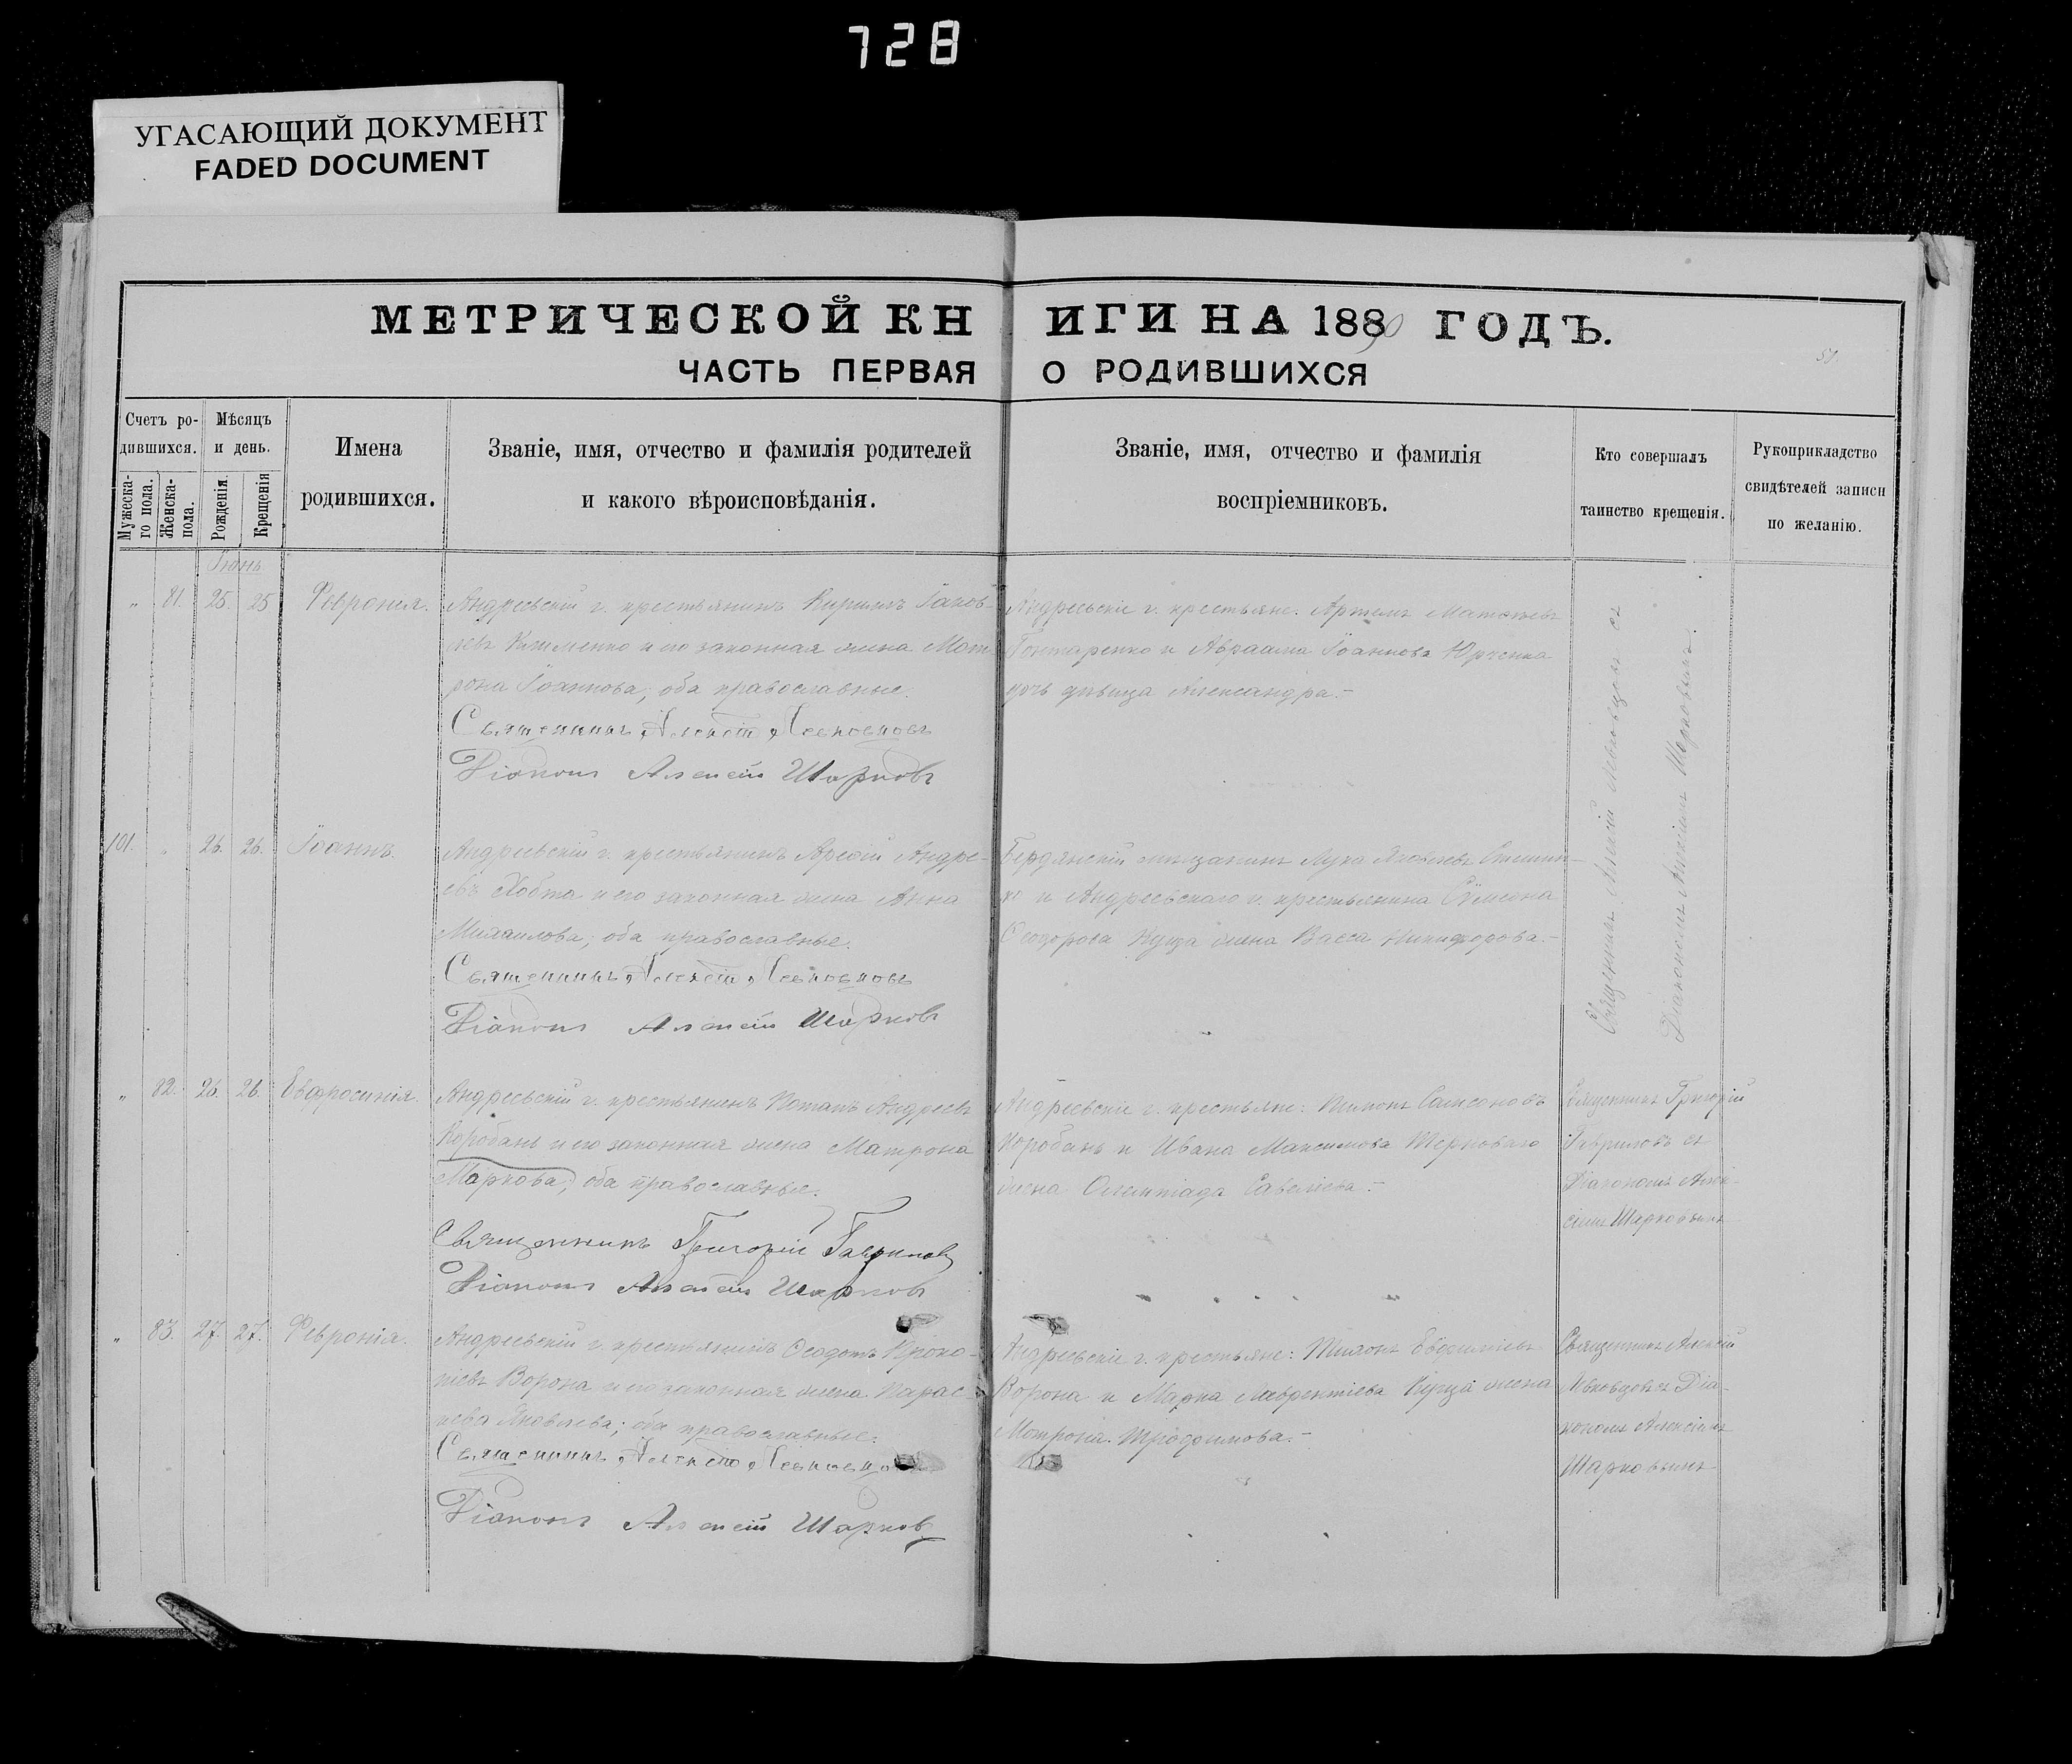 728
УГАСАЮЩИЙ ДОКУМЕНТ
FADED DOCUMENT
МЕТРИЧЕСКОЙ КНИГИ НА 1890 ГОДЪ.
ЧАСТЬ ПЕРВАЯ О РОДИВШИХСЯ
Счетъ ро-
дившихся.
Мужеска-
го пола.
Женска-
пола.
Мѣсяцъ
и день.
Рожденія.
Крещенія
Имена
родившихся.
Званіе, имя, отчество и фамилія родителей
и какого вѣроисповѣданія.
Званіе, имя, отчество и фамилія
воспріемниковъ.
Кто совершалъ
таинство крещенія.
Рукоприкладство
свидѣтелей записи
по желанію.
Іюнь
„ 81. 25. 25 Феврония.
Андреевскій г. крестьянинъ Кириллъ Іаков-
левъ Клименко и его законная жена Мат-
рона Іоаннова, оба православные.
Священникъ Алексій
Діаконъ Алексій Шарковъ
Андреевскіе г. крестьяне: Артемъ Матѳеевъ
Гонтаренко и Авраама Іоаннова Юрченка
дочь дѣвица Александра.–
Священникъ Алексій съ
Діакономъ Алексіемъ Шарковымъ.
101. „ 26. 26. Іоаннъ.
Андреевскій г. крестьянинъ Андре-
евъ и его законная жена Анна
Михаилова; оба православные.
Священникъ Алексій
Діаконъ Алексій Шарковъ
Бердянскій мѣщанинъ Лука Яковлевъ
и Андреевскаго г. крестьянина Сѵмеона
Ѳеодорова Куца жена Васса Никифорова.–
„ 82. 26. 26. Евфросинія.
Андреевскій г. крестьянинъ Потапъ Андреевъ
Коробань и его законная жена Матрона
Маркова; оба православные.
Священникъ Григорій Гавриловъ
Діаконъ Алексій Шарковъ
Андреевскіе г. крестьяне: Самсоновъ
Коробань и Ивана Максимова Терноваго
жена Олимпіада Савеліева.–
Священникъ Григорій
Гавриловъ съ
Діакономъ Алек-
сіемъ Шарковымъ
„ 83. 27. 27. Февронія.
Андреевскій г. крестьянинъ Ѳеодотъ Проко-
піевъ Ворона и его законная жена Парас-
кева Яковлева; оба православные.
Священникъ Алексій
Діаконъ Алексій Шарковъ
Андреевскіе г. крестьяне: Евфиміевъ
Ворона и Марка Лаврентіева Куца жена
Матрона Трофимова.–
Священникъ Алексій
съ Діа-
кономъ Алексіемъ
Шарковымъ